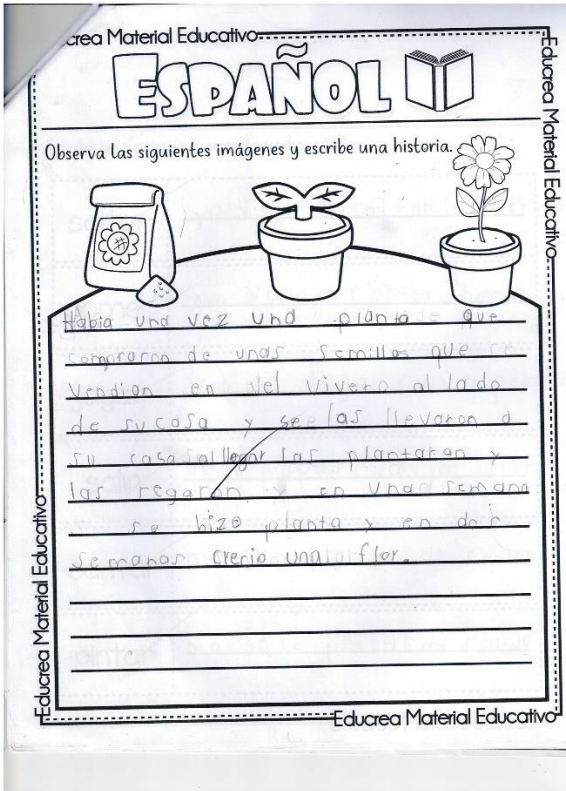 crea Material Educativo
ESPAÑOL
Observa las siguientes imágenes y escribe una historia.
Habia una vez una planta que
compraron de unas semillas que se
vendian en el vivero al lado
de su casa y se las llevaron a
su casa al llegar las plantaran y
las regaron y en unas semana
se hizo planta y en dos
semanas crecio una flor.
Educrea Material Educativo
Educrea Material Educativo
Educrea Material Educativo